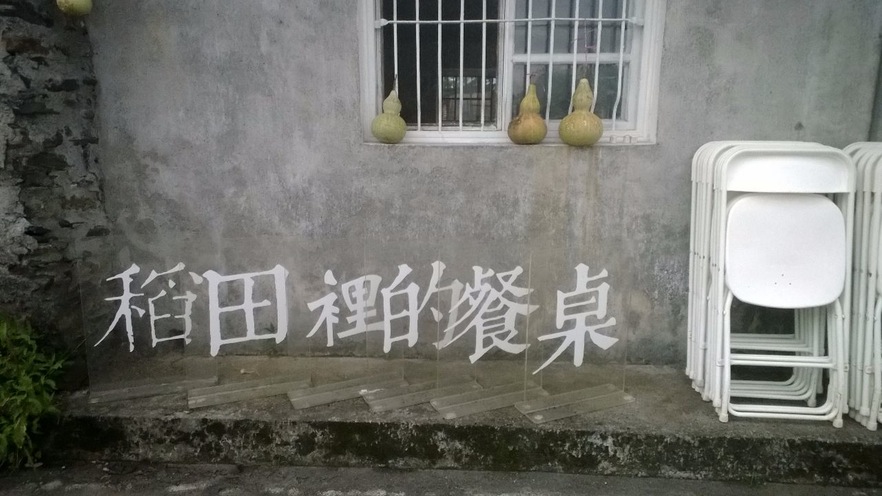 稻田裡的餐桌